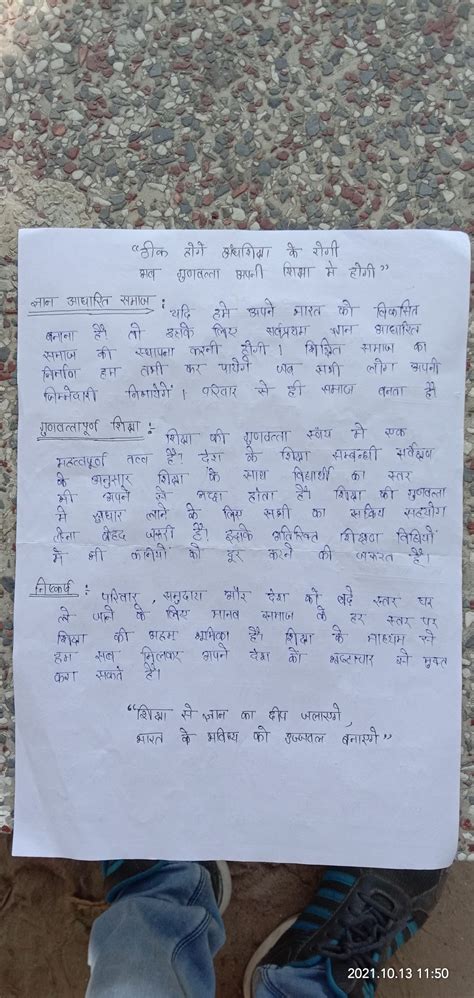 “ठीक होगे अंधशिक्षा के रोगी
जब गुणवत्ता अपनी शिक्षा मे होगी”
ज्ञान आधारित समाज : यदि हमे अपने भारत को विकसित
बनाना है। तो इसके लिए सर्वप्रथम ज्ञान आधारित
समाज की स्थापना करनी होगी। शिक्षित समाज का
निर्माण हम तभी कर पायेगें जब सभी लोग अपनी
जिम्मेवारी निभायेगें। परिवार से ही समाज बनता है
गुणवत्तापूर्ण शिक्षा :- शिक्षा की गुणवत्ता स्वंय मे एक
महत्वपूर्ण तत्व है। देश के शिक्षा सम्बन्धी सर्वेक्षण
के अनुसार शिक्षा के साथ विद्यार्थी का स्तर
भी अपने से होता है। शिक्षा की गुणवत्ता
मे सुधार लाने के लिए सभी का सक्रिय सहयोग
होना बेहद जरूरी है। इसके अतिरिक्त शिक्षण विधियों
मे भी कमियों को दूर करने की जरूरत है।
निष्कर्ष :- परिवार, समुदाय और देश को बड़े स्तर पर
ले जाने के लिए मानव समाज के हर स्तर पर
शिक्षा की अहम भूमिका है। शिक्षा के माध्यम से
हम सब मिलकर अपने देश को भ्रष्टाचार से मुक्त
करा सकते है।
“शिक्षा से ज्ञान का दीप जलाएगे,
भारत के भविष्य को उज्जवल बनाएगे”
2021.10.13 11:50